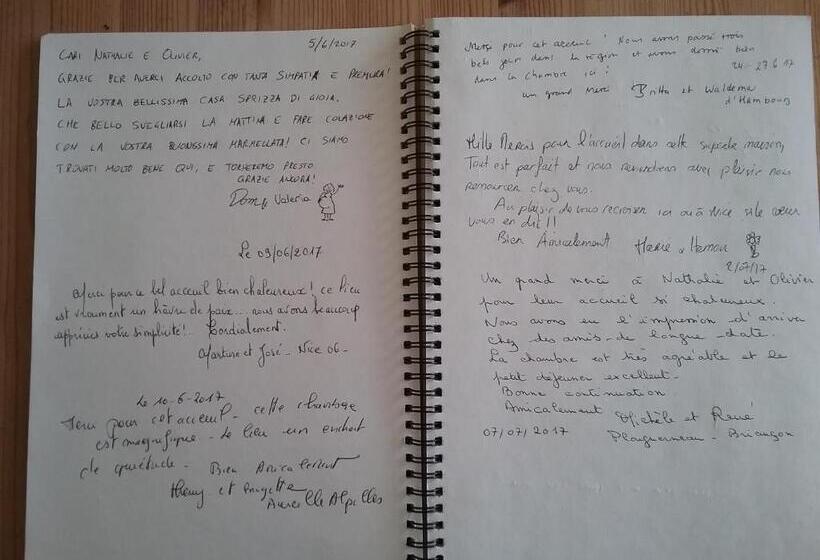 5/6/2017
CARI NATHALIE E OLIVIER,
GRAZIE PER AVERCI ACCOLTO CON TANTA SIMPATIA E PREMURA!
LA VOSTRA BELLISSIMA CASA SPRIZZA DI GIOIA.
CHE BELLO SVEGLIARSI LA MATTINA E FARE COLAZIONE
CON LA VOSTRA BUONISSIMA MARMELLATA! CI SIAMO
TROVATI MOLTO BENE QUI, E TORNEREMO PRESTO
GRAZIE ANCORA!
Valeria
Le 09/06/2017
Merci pour ce bel acceuil bien chaleureux! ce lieu
est vraiment un hâvre de paix... nous avons beaucoup
apprécié votre simplicité!.. Cordialement.
Martine et José - Nice 06-
Le 10-6-2017
Merci pour cet acceuil - cette chambre
est magnifique - le lieu un endroit
de quiétude - Bien Amicalement
et
Aureille Alpilles
Merci pour cet accueil! Nous avons passé trois
bels jours dans la région et avons dormi bien
dans la chambre ici!
24.-27.6.17
un grand Merci Britta et Waldemar
d'Hambourg
Mille Mercis pour l'accueil dans cette superbe maison,
Tout est parfait et nous reviendrons avec plaisir nous
ressourcer chez vous.
Au plaisir de vous recroiser ici ou à Nice si le cœur
vous en dit!!
Bien Amicalement
2/07/17
Un grand merci à Nathalie et Olivier
pour leur accueil si chaleureux.
Nous avons eu l'impression d'arriver
chez des amis de longue date.
La chambre est très agréable et le
petit déjeuner excellent-
Bonne continuation.
Amicalement Michèle et René
07/07/2017 Plouguerneau - Briançon